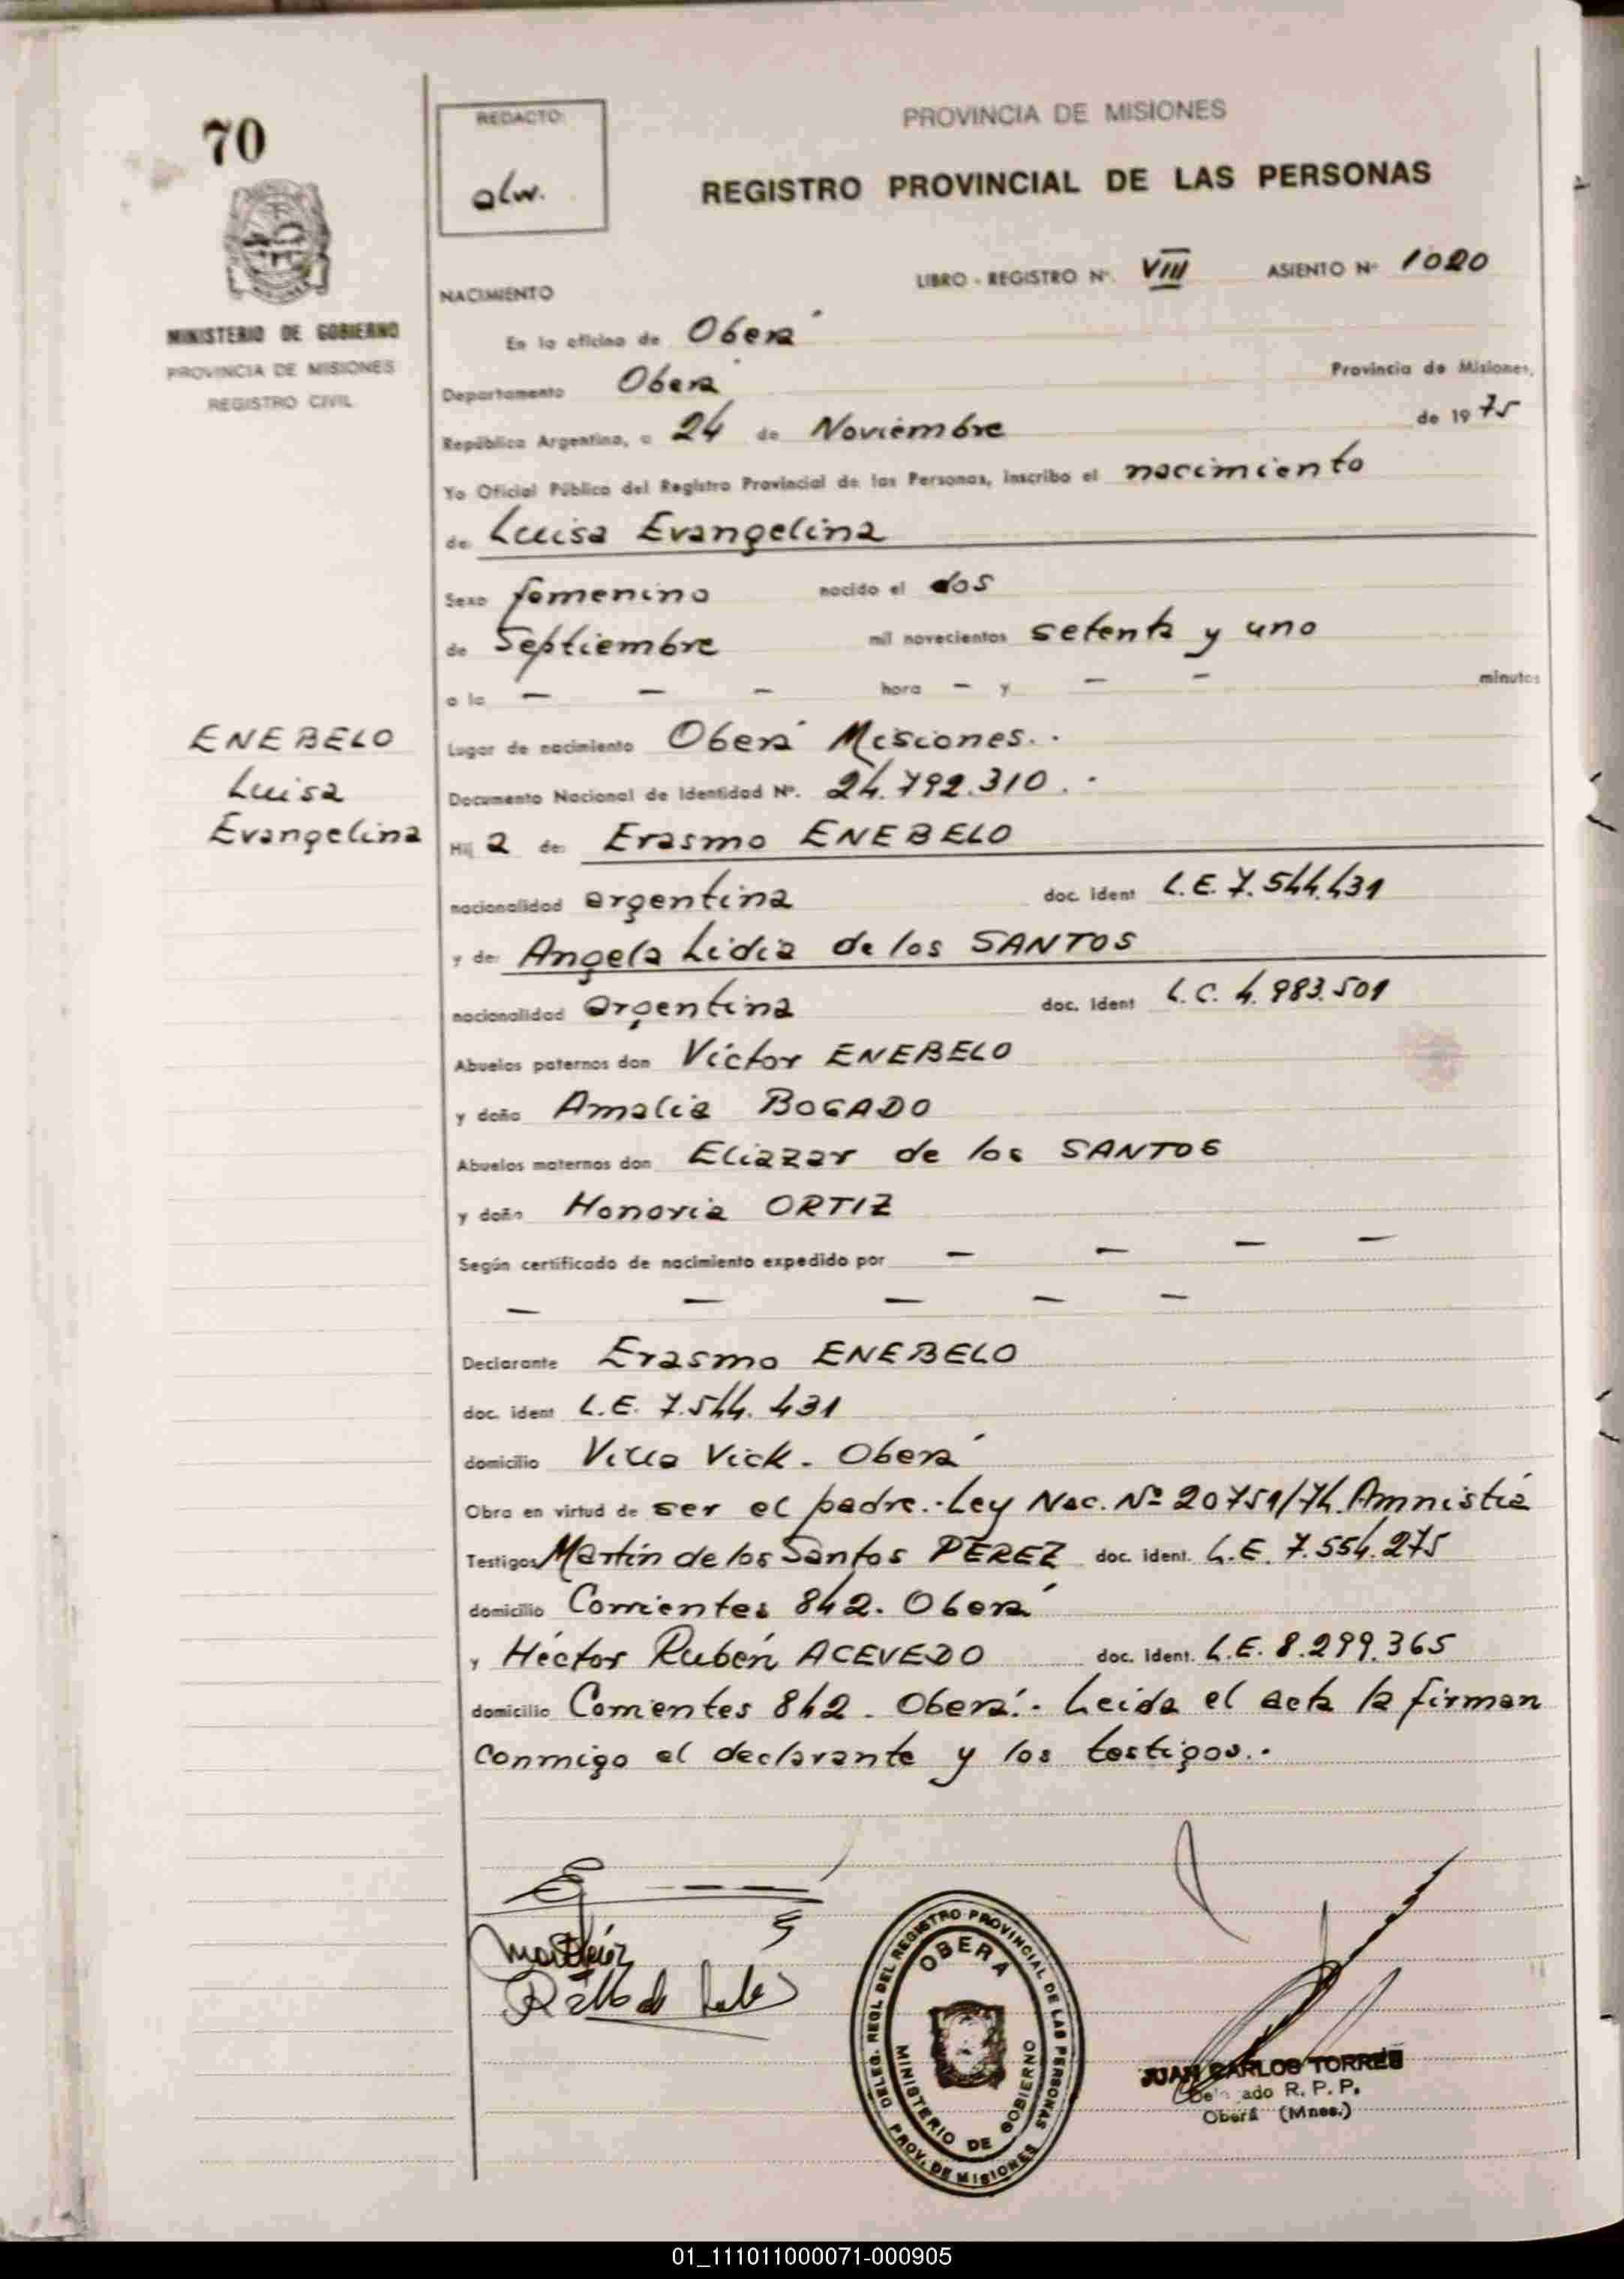 70
REDACTO:
alw.
PROVINCIA DE MISIONES
REGISTRO PROVINCIAL DE LAS PERSONAS
MINISTERIO DE GOBIERNO
PROVINCIA DE MISIONES
REGISTRO CIVIL
LIBRO - REGISTRO Nº. VIII ASIENTO Nº 1020
NACIMIENTO
En la oficina de Oberá
Departamento Oberá Provincia de Misiones,
República Argentina, a 24 de Noviembre de 1975
Yo Oficial Público del Registro Provincial de las Personas, inscribo el nacimiento
de Luisa Evangelina
Sexo femenino nacido el dos
de Septiembre mil novecientos setenta y uno
a la — — — hora — y — — minutos
ENEBELO
Luisa
Evangelina
Lugar de nacimiento Oberá Misiones..
Documento Nacional de Identidad Nº. 24.792.310.-
Hij a de: Erasmo ENEBELO
nacionalidad argentina doc. ident L.E. 7.544.431
y de: Angela Lidia de los SANTOS
nacionalidad argentina doc. ident L.C. 4.983.501
Abuelos paternos don Victor ENEBELO
y doña Amalia BOGADO
Abuelos maternos don Eliazar de los SANTOS
y doña Honoria ORTIZ
Según certificado de nacimiento expedido por — — — —
— — — — —
Declarante Erasmo ENEBELO
doc. ident L.E. 7.544.431
domicilio Villa Vick - Oberá
Obra en virtud de ser el padre.-Ley Nac. Nº 20751/74.Amnistía
Testigos Martín de los Santos PEREZ doc. ident. L.E. 7.554.275
domicilio Corrientes 842. Oberá
y Héctor Rubén ACEVEDO doc. ident. L.E. 8.299.365
domicilio Corrientes 842. Oberá.- Leída el acta la firman
conmigo el declarante y los testigos.-
DELEG. REGL DEL REGISTRO PROVINCIAL DE LAS PERSONAS
OBERA
MINISTERIO DE GOBIERNO
PROV. DE MISIONES
JUAN CARLOS TORRES
R. P. P.
Oberá (Mnes.)
01_111011000071-000905